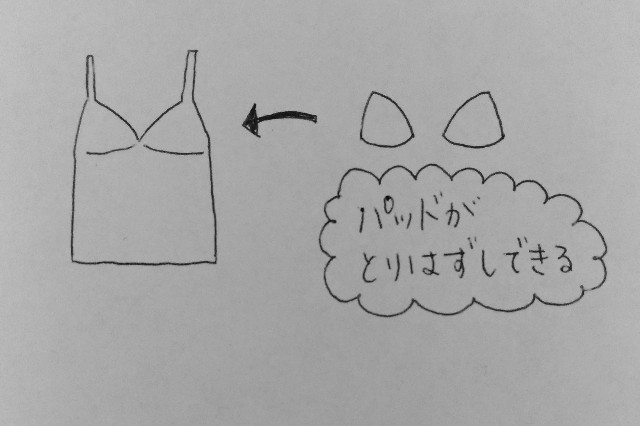 パッドが
とりはずしできる